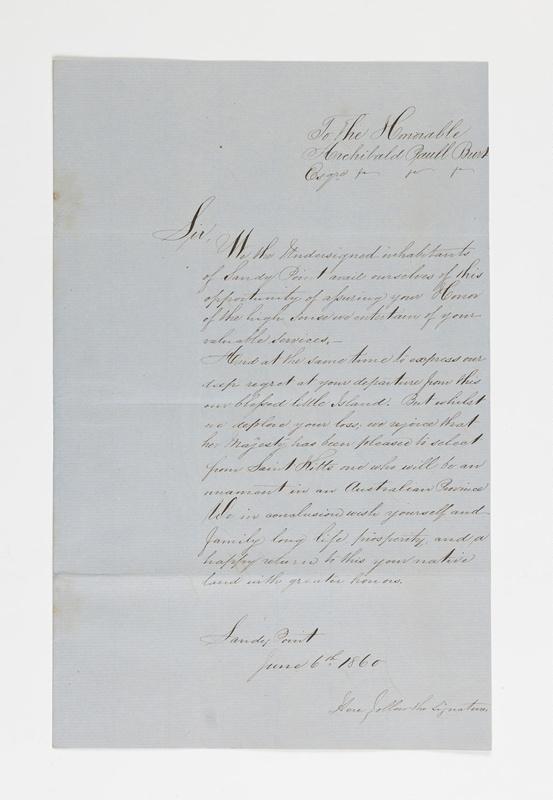 To the Honorable
Archibald Paull Burt
Esqre
Sir,
We, the Undersigned inhabitants
of Sandy Point avail ourselves of this
opportunity of assuring your Honor
of the high sense we entertain of your
valuable services.—
And at the same time to express our
deep regret at your departure from this
our blessed little Island. But whilst
we deplore your loss, we rejoice that
her Majesty has been pleased to select
from Saint Kitts one who will be an
ornament in an Australian Province
We in conclusion wish yourself and
family long life prosperity, and a
happy return to this your native
land with greater honors.
Sandy Point
June 6th 1860
Here follow the Signatures